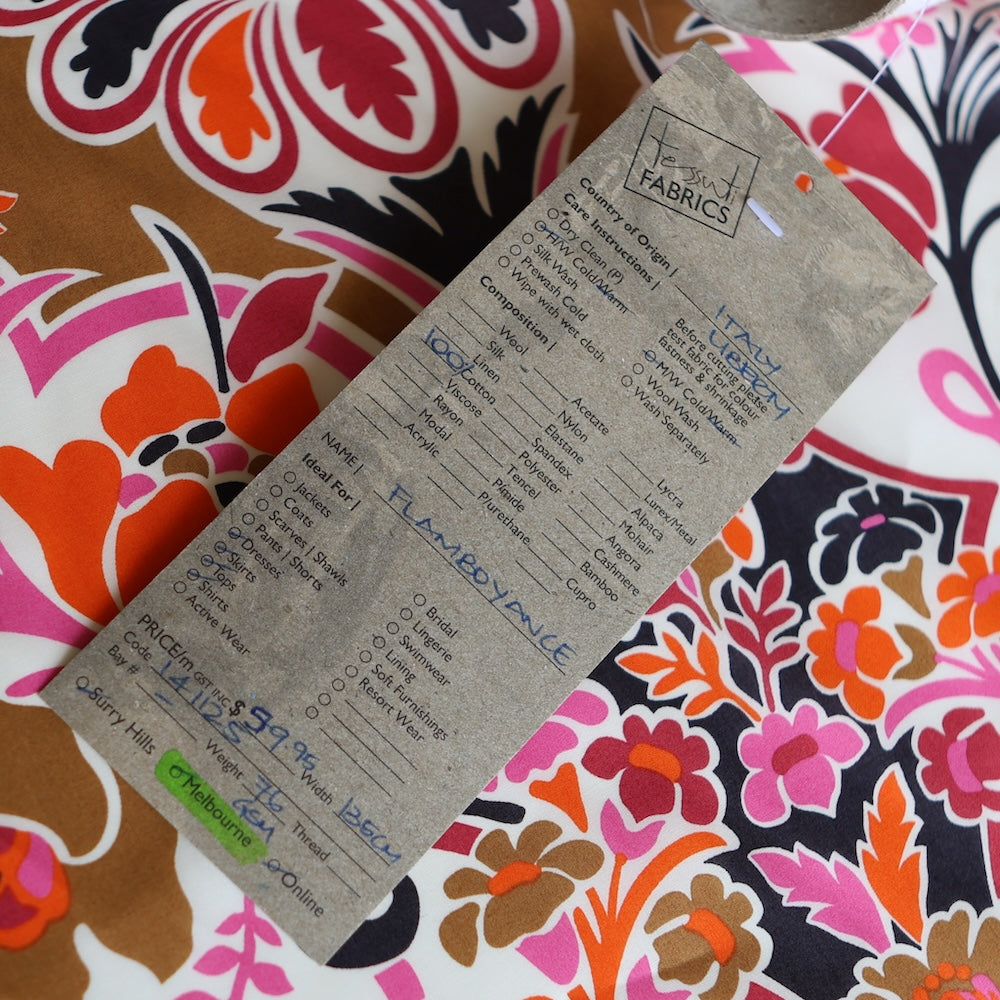 Tessuti
FABRICS
Country of Origin | ITALY
LIBERTY
Care Instructions |
Dry Clean (P)
H/W Cold/Warm
Silk Wash
Prewash Cold
Wipe with wet cloth
Before cutting please
test fabric for colour
fastness & shrinkage
M/W Cold/Warm
Wool Wash
Wash Separately
Composition |
Wool
Silk
Linen
100% Cotton
Viscose
Rayon
Modal
Acrylic
Acetate
Nylon
Elastane
Spandex
Polyester
Tencel
P/juide
P/urethane
Lycra
Lurex/Metal
Alpaca
Mohair
Angora
Cashmere
Bamboo
Cupro
NAME | FLAMBOYANCE
Ideal For |
Jackets
Coats
Scarves | Shawls
Pants | Shorts
Dresses
Skirts
Tops
Shirts
Active Wear
Bridal
Lingerie
Swimwear
Lining
Soft Furnishings
Resort Wear
PRICE/m GST INC $ 59.95
Code 141125 Width 136cm
Bay # Weight 76 GSM Thread
Surry Hills Melbourne Online